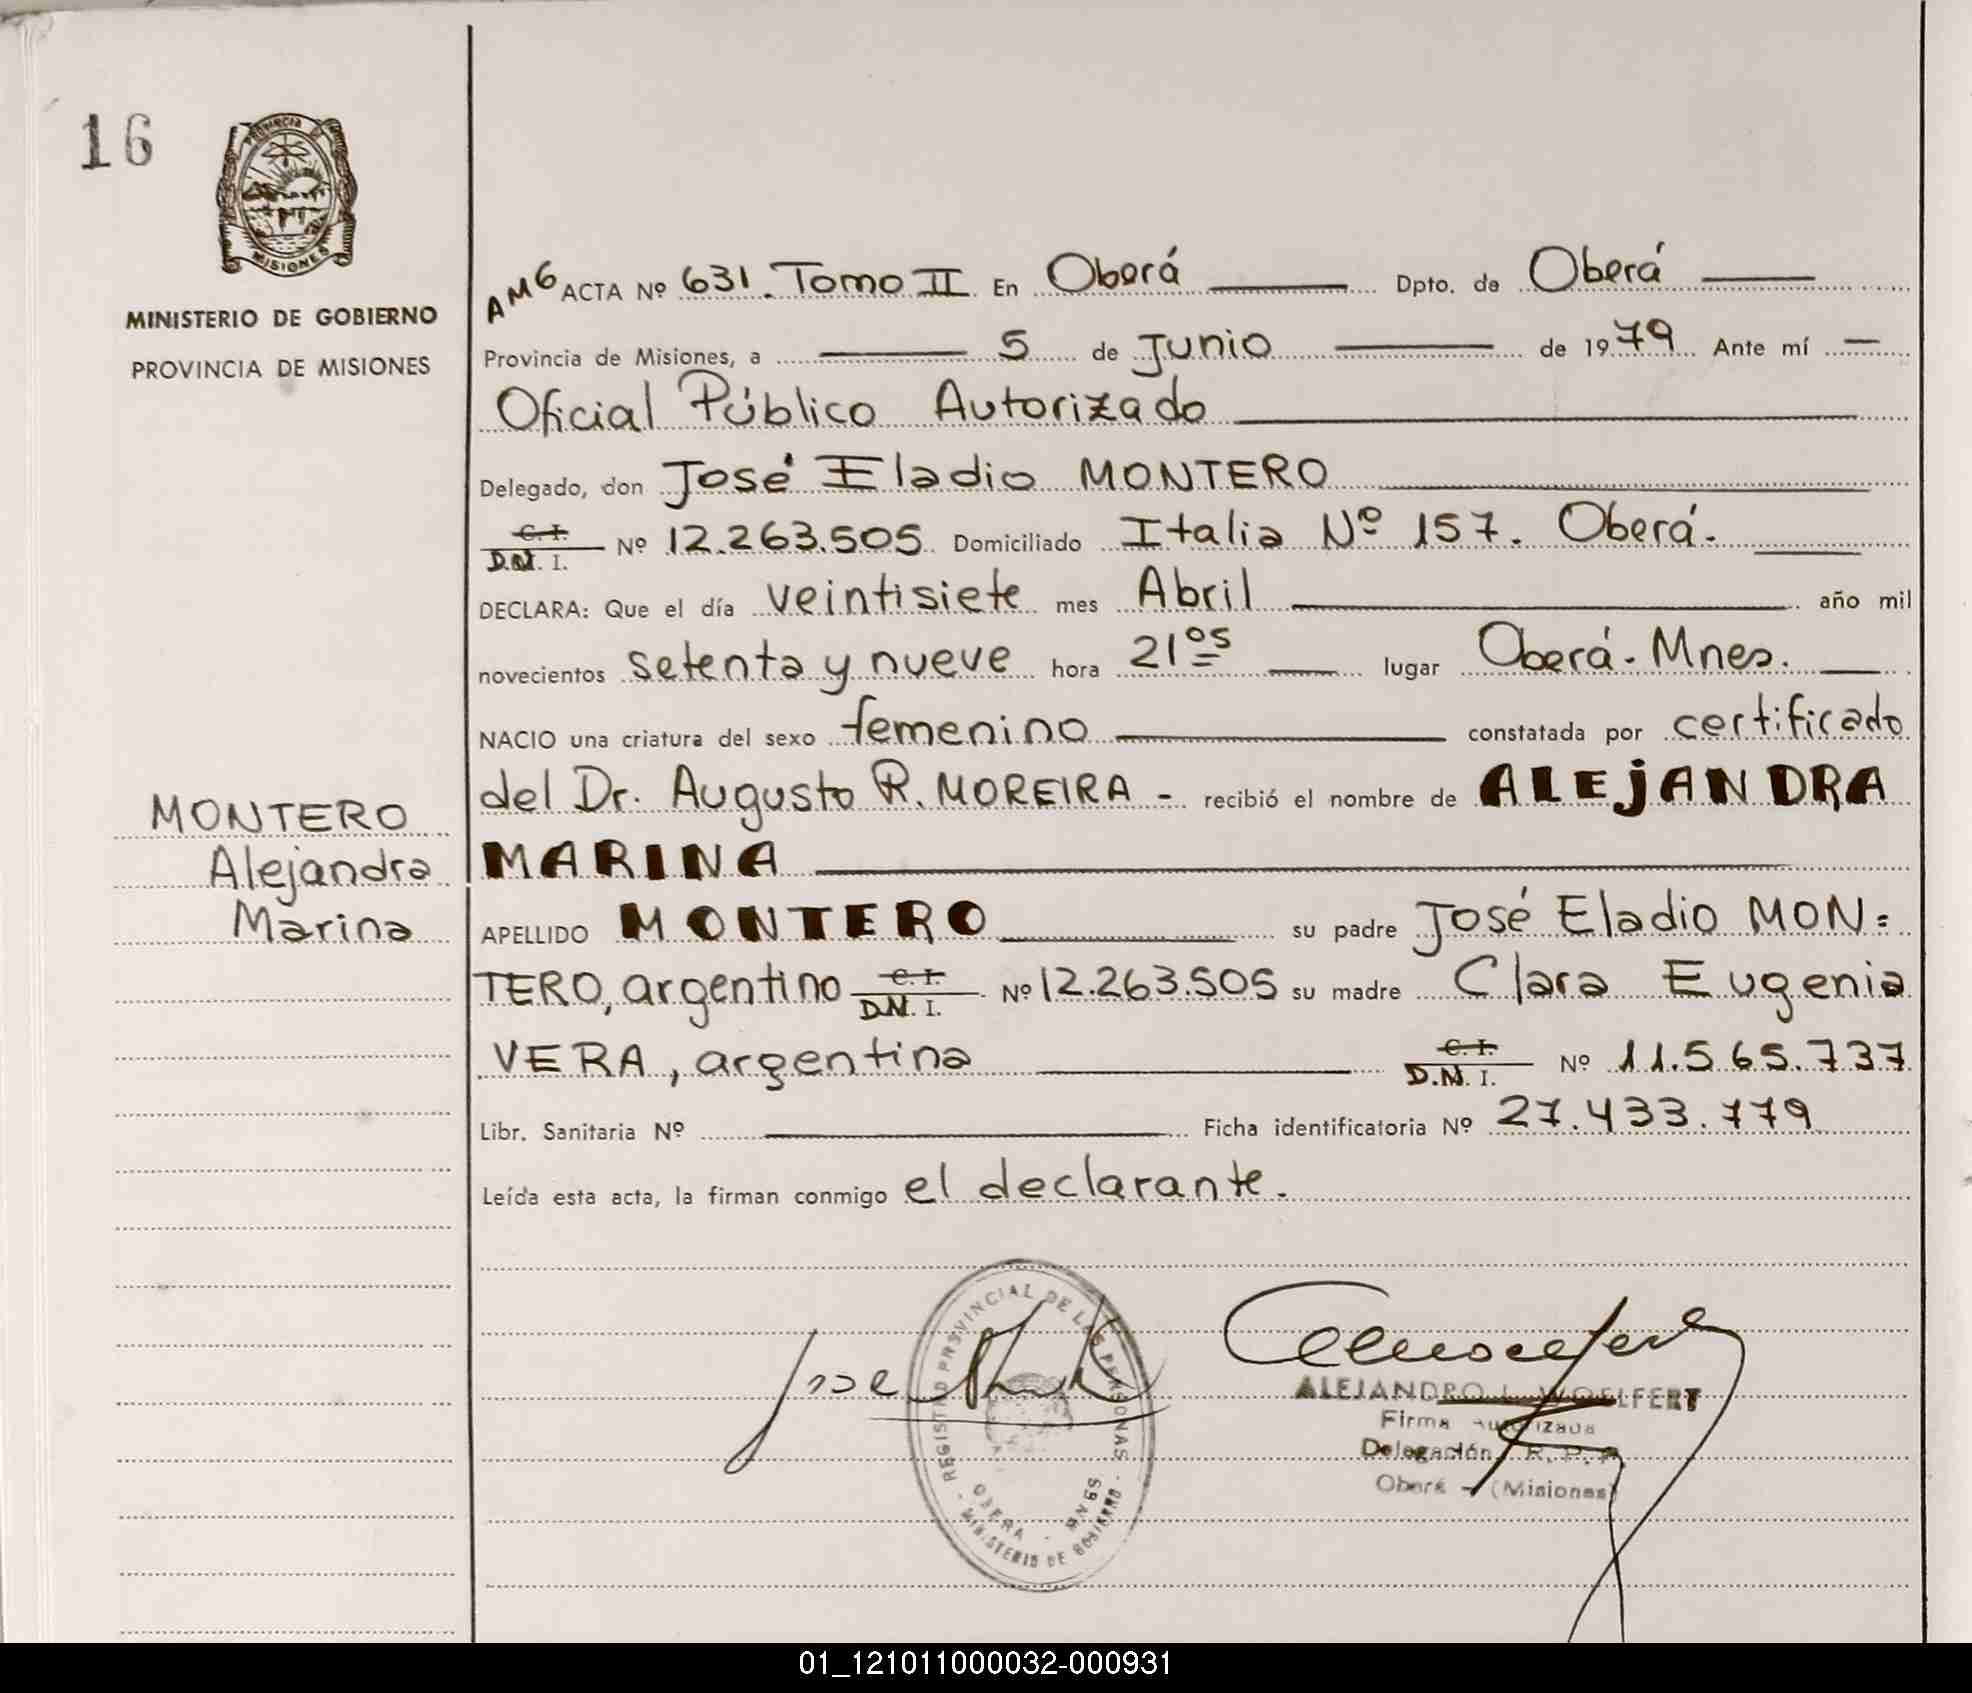 16
PROVINCIA DE
MISIONES
MINISTERIO DE GOBIERNO
PROVINCIA DE MISIONES
AMG ACTA Nº 631. Tomo II En Oberá Dpto. de Oberá
Provincia de Misiones, a 5 de Junio de 1979 Ante mí
Oficial Público Autorizado
Delegado, don José Eladio MONTERO
C. I.
D.N. I. Nº 12.263.505 Domiciliado Italia Nº 157. Oberá.
DECLARA: Que el día veintisiete mes Abril año mil
novecientos setenta y nueve hora 21os lugar Oberá. Mnes.
NACIO una criatura del sexo femenino constatada por certificado
del Dr. Augusto R. MOREIRA - recibió el nombre de ALEJANDRA
MARINA
APELLIDO MONTERO su padre José Eladio MON=
TERO, argentino C. I. D.N. I. Nº 12.263.505 su madre Clara Eugenia
VERA, argentina C. I. D.N. I. Nº 11.565.737
Libr. Sanitaria Nº Ficha identificatoria Nº 27.433.779
Leída esta acta, la firman conmigo el declarante.
MONTERO
Alejandra
Marina
Jose
REGISTRO PROVINCIAL DE LAS PERSONAS
OBERA - MNES
MINISTERIO DE GOBIERNO
ALEJANDRO L. WOELFERT
Firma Autorizada
Delegación R. P. P.
Oberá - (Misiones)
01_121011000032-000931